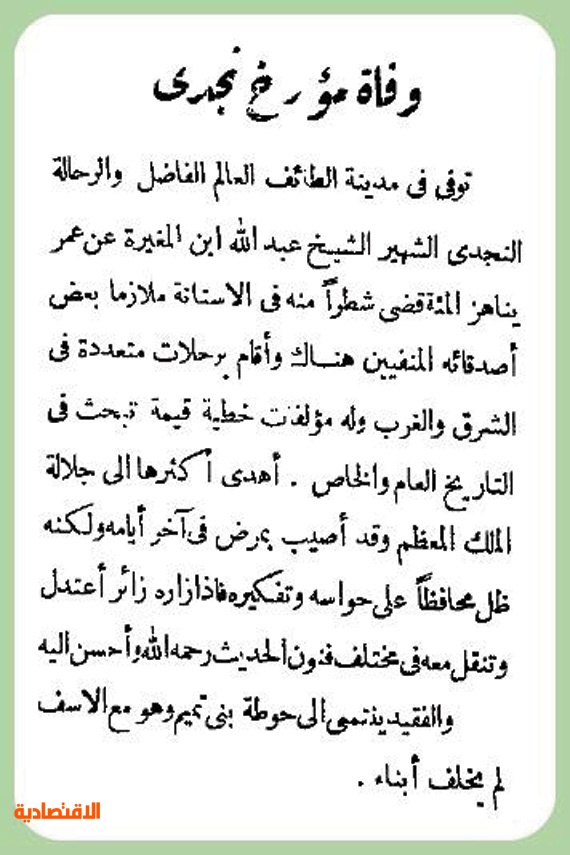 وفاة مؤرخ نجدى
توفى فى مدينة الطائف العالم الفاضل والرحالة
النجدى الشهير الشيخ عبد الله ابن المغيرة عن عمر
يناهز المئة قضى شطراً منه فى الاستانة ملازما بعض
أصدقائه المنفيين هناك وأقام برحلات متعددة فى
الشرق والغرب وله مؤلفات خطية قيمة تبحث فى
التاريخ العام والخاص . أهدى أكثرها الى جلالة
الملك المعظم وقد أصيب بمرض فى آخر أيامه ولكنه
ظل محافظاً على حواسه وتفكيره فاذا زاره زائر أعتدل
وتنقل معه فى مختلف فنون الحديث رحمه الله وأحسن اليه
والفقيد ينتمى الى حوطة بنى تميم وهو مع الاسف
لم يخلف أبناء .
الاقتصادية